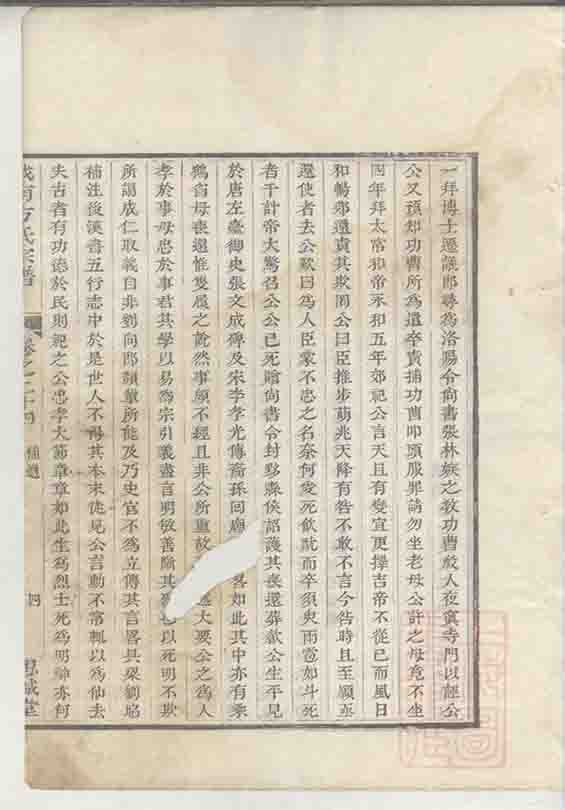 一拜博士遷議郎尋為洛陽令尚書張林嫉之教功曹殺人夜寘寺門以誣公
公又預知功曹所為遣卒責捕功曹叩頭服罪請勿坐老母公許之母竟不坐
四年拜太常和帝永和五年郊祀公言天且有變宜更擇吉帝不從已而風日
和暢郊還責其欺罔公曰臣推步萌兆天降有咎不敢不言今咎時且至願亟
還使者去公歎曰為人臣蒙不忠之名奈何愛死飲酖而卒須臾雨雹如斗死
者千計帝大驚召公公已死贈尚書令封黟縣侯詔護其喪還葬歙公生平見
於唐左臺御史張文成碑及宋李孝光傳裔孫回廟 畧如此其中亦有乘
鶴省母喪還惟隻履之說然事頗不經且非公所重故 大要公之為人
孝於事母忠於事君其學以易為宗引義盡言明敏善隂其 也以死明不欺
所謂成仁取義自非劉向郎顗輩所能及乃史官不為立傳其言畧具梁劉昭
補注後漢書五行志中於是世人不得其本末徒見公言動不常輒以為仙去
夫古者有功德於民則祀之公忠孝大節章章如此生為烈士死為明神亦何
城南方氏宗譜 卷之二十四 補遺 四 思誠堂